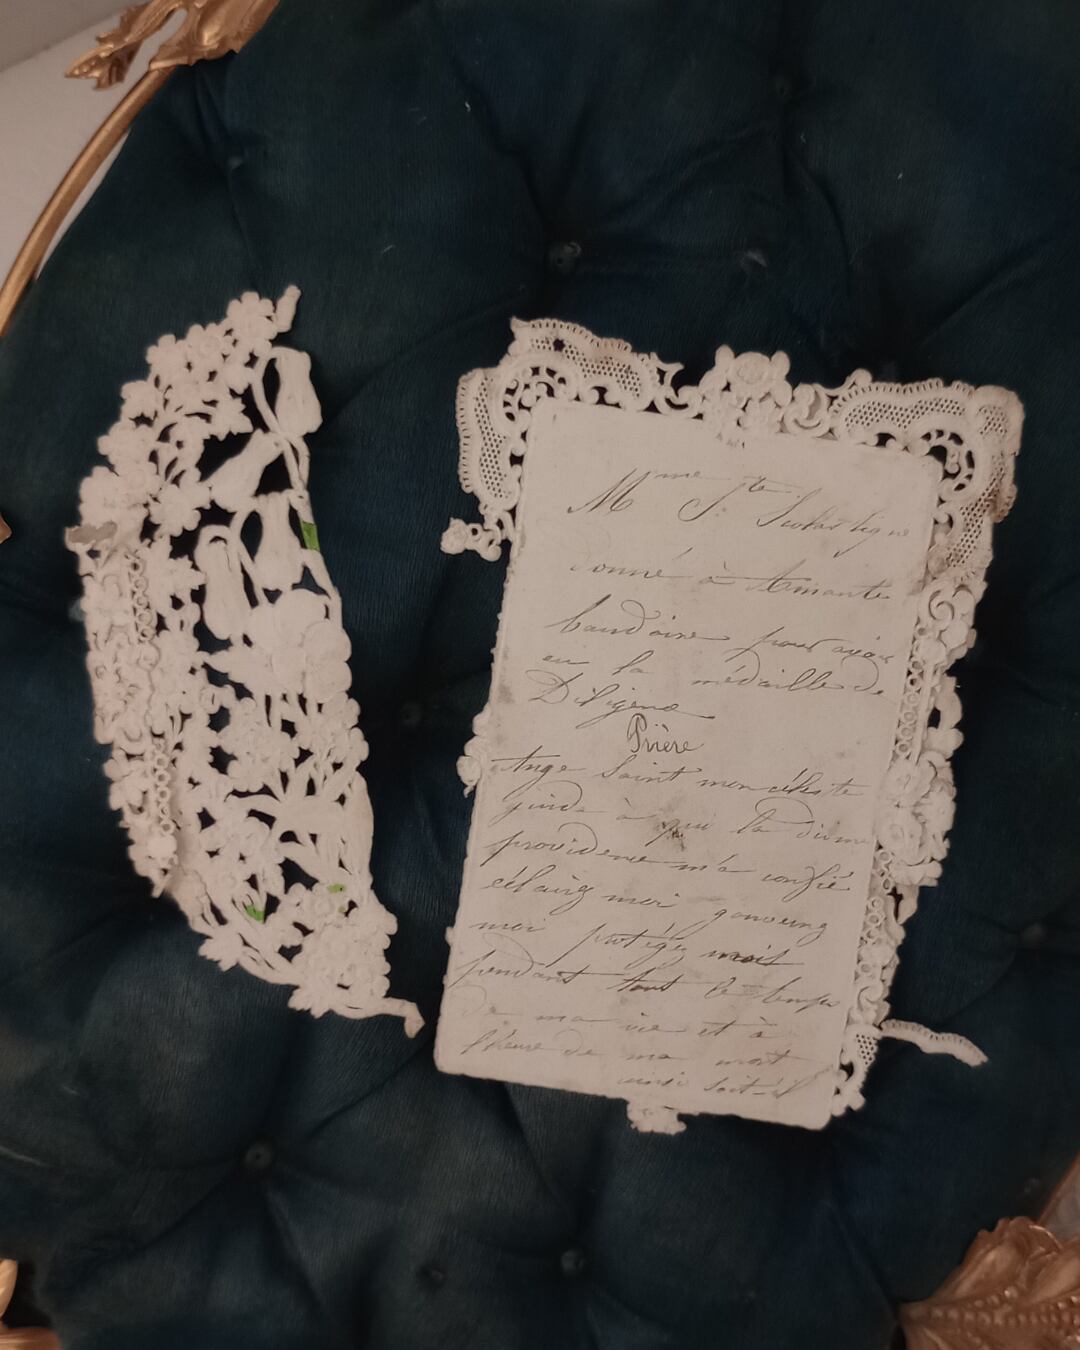 Mme Ste Scolastique
donné à Amante
baudoire pour avoir
eu la médaille de
Diligence
Prière
Ange Saint mon céleste
guide à qui la divine
providence m'a confié
éclairez moi gouvernez
moi protégez moi
pendant tout le temps
de ma vie et à
l'heure de ma mort
ainsi soit-il